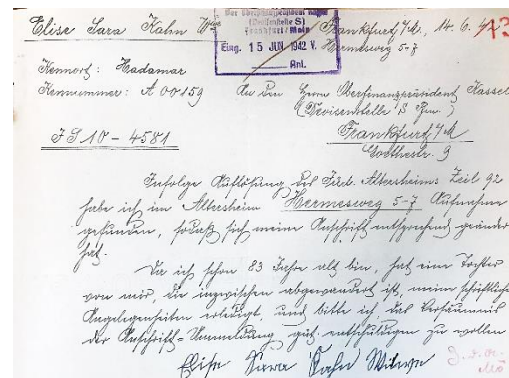 Elise Sara Kahn Wwe
Frankfurt a/M, 14.6.42
Der Oberfinanzpräsident Kassel
(Devisenstelle S)
Frankfurt/Main
Eing. 15 JUNI 1942 V.
Anl.
Hermesweg 5-7
Kennort: Hadamar
Kennnummer: A 00159
An den Herrn Oberfinanzpräsident Kassel
(Devisenstelle S
Frankfurt a/M
Goethestr. 9
JS 10 - 4581
Infolge Auflösung des Jüd. Altersheims Zeil 92
habe ich im Altersheim Hermesweg 5-7 Aufnahme
gefunden, sodaß sich meine Anschrift entsprechend geändert
hat.
Da ich schon 83 Jahre alt bin, hat eine Tochter
von mir, die inzwischen abgewandert ist, meine schriftlichen
Angelegenheiten erledigt, und bitte ich, das Versäumnis
der Anschrift-Ummeldung güt. entschuldigen zu wollen
Elise Sara Kahn Witwe